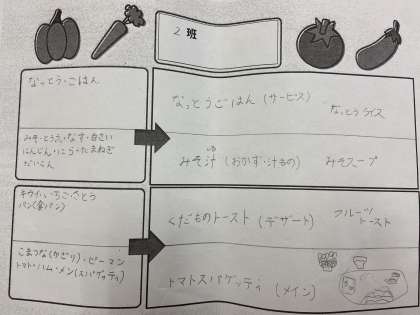 2 班
なっとう・ごはん
なっとうごはん (サービス)
なっとうライス
みそ・とうふ・なす・白さい
にんじん・にら・たまねぎ
だいこん
みそ汁 (おかず・汁もの)
みそスープ
キウイ・いちご・さとう
パン(食パン)
くだものトースト (デザート)
フルーツ
トースト
こまつな(かざり)・ピーマン
トマト・ハム・メン(スパゲッティ)
トマトスパゲッティ (メイン)